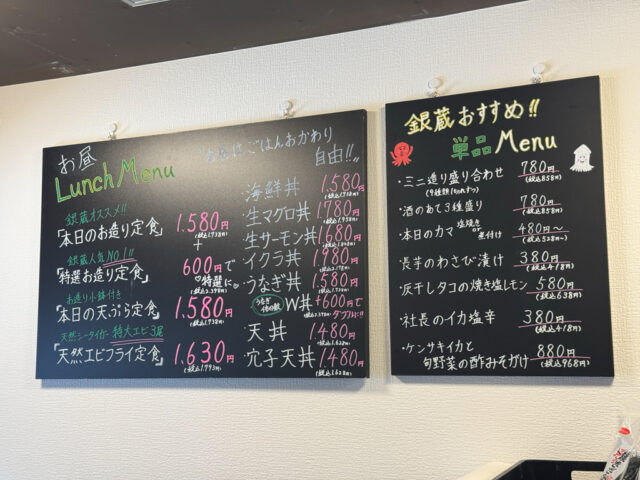 お昼
Lunch Menu
お昼はごはんおかわり
自由!!
銀蔵オススメ!!
「本日のお造り定食」 1.580円
(税込1.738円)
+
銀蔵人気No.1!!
「特選お造り定食」 600円で
♡特選に♡
(税込2.398円)
お造り小鉢付き
「本日の天ぷら定食」 1.580円
(税込1.738円)
天然シータイガー 特大エビ3尾
「天然エビフライ定食」 1.630円
(税込1.793円)
・海鮮丼 1.580円
(税込1.738円)
・生マグロ丼 1.780円
(税込1.958円)
・生サーモン丼 1.680円
(税込1.848円)
・イクラ丼 1.980円
・うなぎ丼 1.580円
(税込1.738円)
うなぎ倍の量 W丼 +600円で
ダブルに!!
・天丼 1480円
(税込1.628円)
・穴子天丼 1480円
(税込1.628円)
銀蔵おすすめ!!
単品Menu
・ミニ造り盛り合わせ 780円
(税込858円)
・酒のあて3種盛り 780円
(税込858円)
・本日のカマ 塩焼き or 煮付け 480円〜
(税込528円〜)
・長芋のわさび漬け 380円
(税込418円)
・灰干しタコの焼き塩レモン 580円
(税込638円)
・社長のイカ塩辛 380円
(税込418円)
・ケンサキイカと
旬野菜の酢みそがけ 880円
(税込968円)